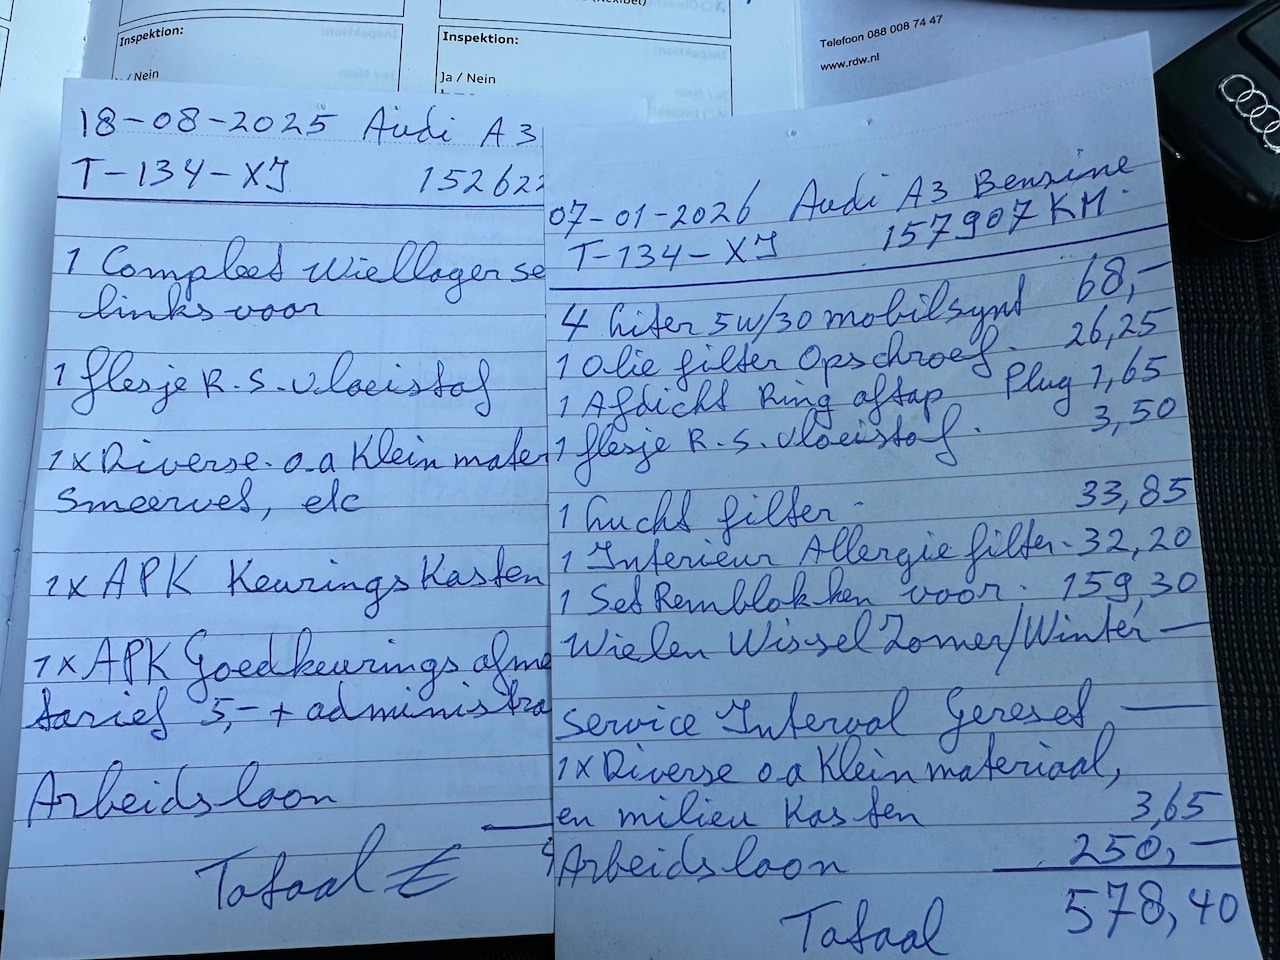 Inspektion:
/ Nein
Inspektion:
Ja / Nein
Telefoon 088 008 74 47
www.rdw.nl
18-08-2025 Audi A3
T-134-XJ 152622
1 Compleet Wiellager se
links voor
1 flesje R.S. vloeistof
1x Diverse o.a Klein mater
Smeervet, etc
1x APK Keurings Kosten
1x APK Goedkeurings afme
tarief 5,- + administra
Arbeidsloon
Totaal €
07-01-2026 Audi A3 Benzine
T-134-XJ 157907 KM.
4 Liter 5W/30 mobilsynt 68,-
1 Olie filter Opschroef. 26,25
1 Afdicht Ring aftap Plug 1,65
1 flesje R.S. vloeistof. 3,50
1 Lucht filter - 33,85
1 Interieur Allergie filter - 32,20
1 Set Remblokken voor. 159,30
Wielen Wissel Zomer/Winter —
Service Interval Gereset —
1x Diverse o.a Klein materiaal,
en milieu Kosten 3,65
Arbeidsloon 250,-
Totaal 578,40